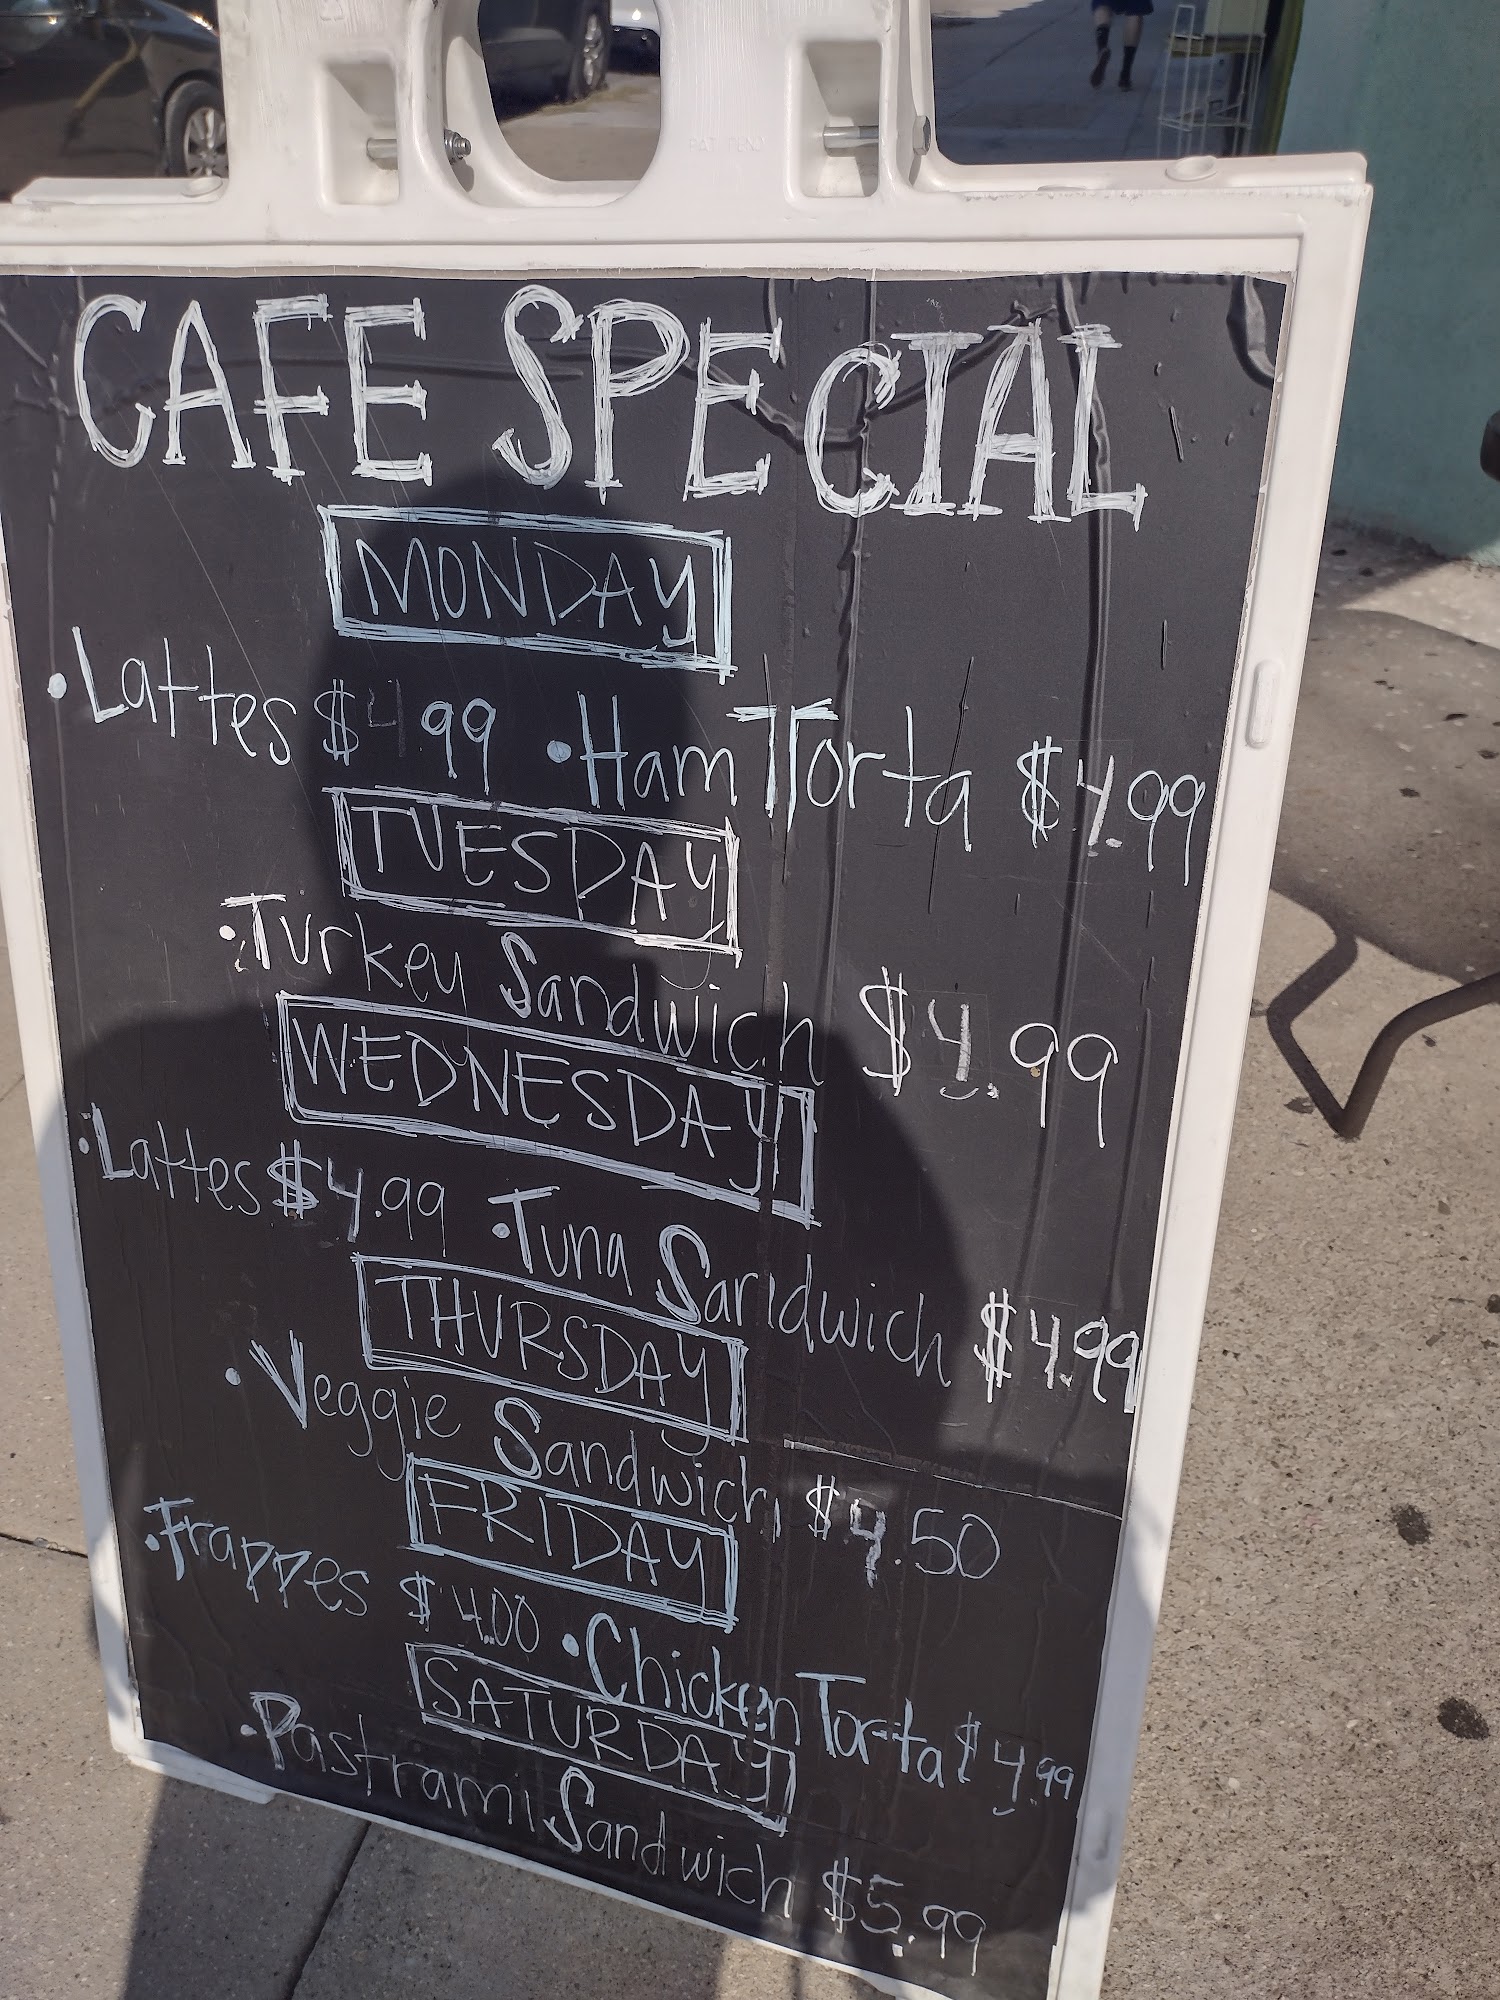 CAFE SPECIAL
MONDAY
•Lattes $4.99 •Ham Torta $4.99
TUESDAY
•Turkey Sandwich $4.99
WEDNESDAY
•Lattes $4.99 •Tuna Sandwich $4.99
THURSDAY
•Veggie Sandwich $4.50
FRIDAY
•Frappes $4.00 •Chicken Torta $4.99
SATURDAY
•Pastrami Sandwich $5.99